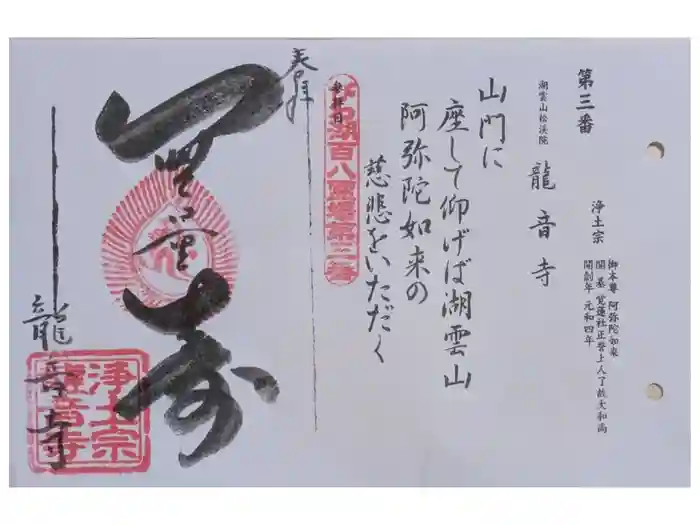 第三番
湖雲山松渓院
龍音寺
浄土宗
御本尊 阿弥陀如来
開基 覚蓮社正誉上人了故大和尚
開創年 元和四年
山門に
座して仰げば湖雲山
阿弥陀如来の
慈悲をいただく
参拝日
びわ湖百八霊場第三番
奉拝
無量寿
龍音寺
浄土宗
龍音寺